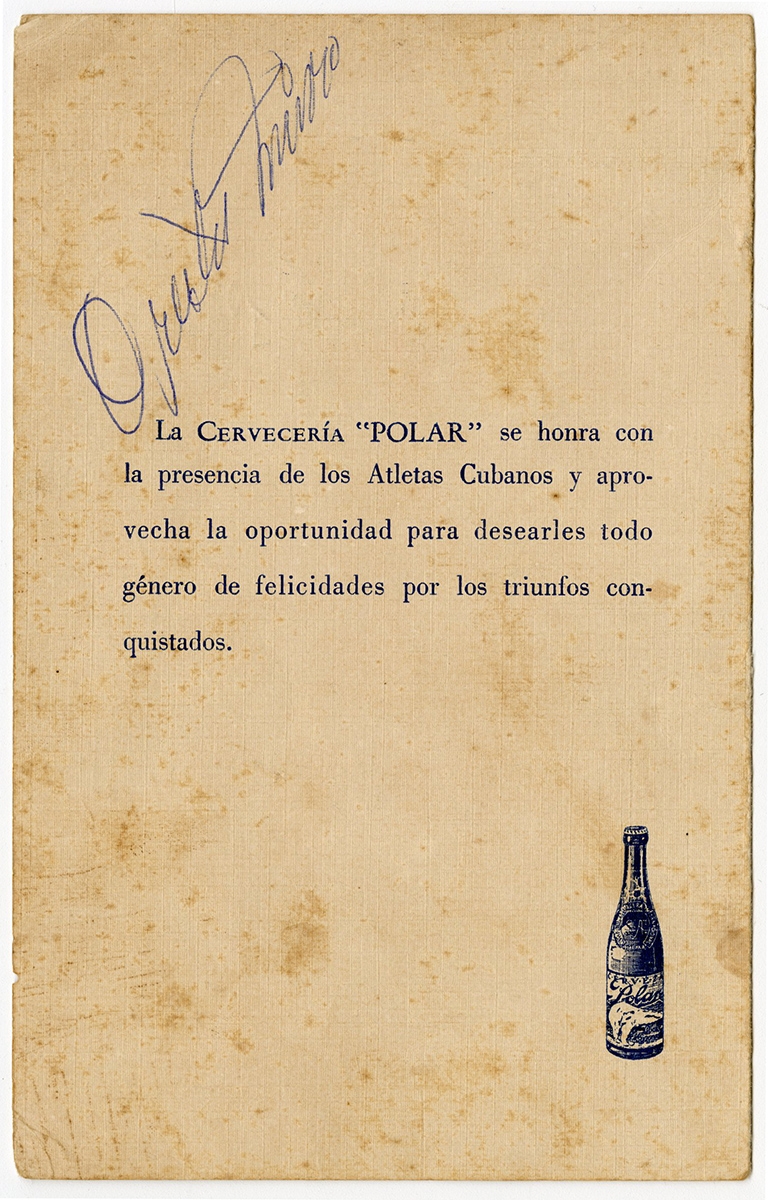 Orestes Miñoso
La CERVECERÍA "POLAR" se honra con
la presencia de los Atletas Cubanos y apro-
vecha la oportunidad para desearles todo
género de felicidades por los triunfos con-
quistados.
Polar